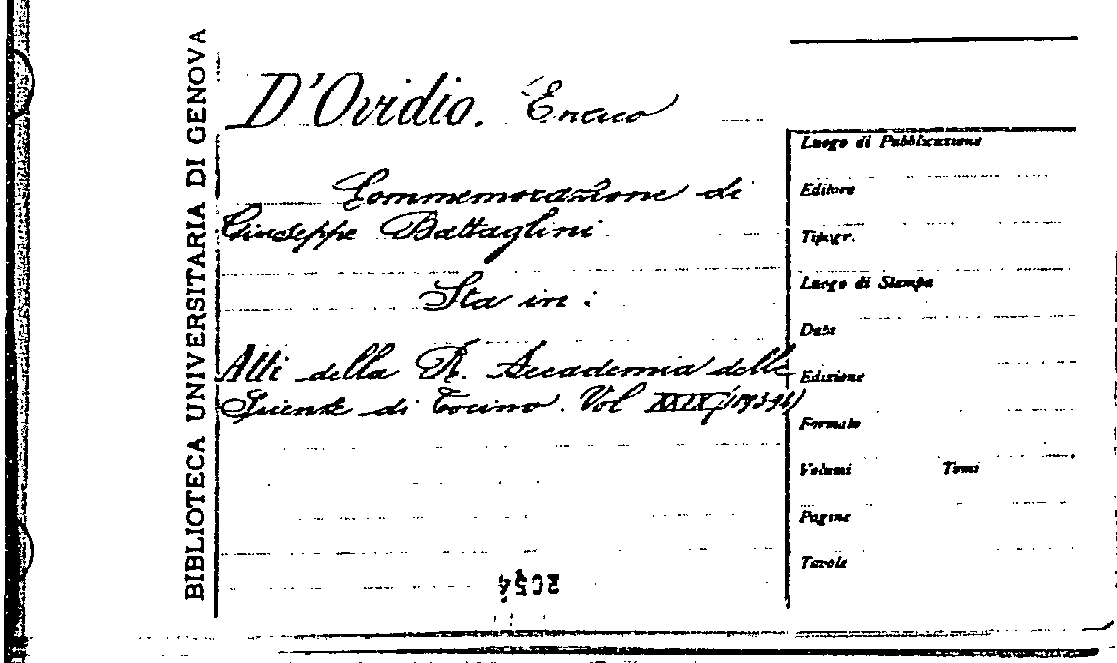 BIBLIOTECA UNIVERSITARIA DI GENOVA
D'Ovidio. Enrico
Commemorazione di
Giuseppe Battaglini
Sta in:
Atti della R. Accademia delle
Scienze di Torino. Vol XXIX
Luogo di Pubblicazione
Editore
Tipogr.
Luogo di Stampa
Data
Edizione
Formato
Volumi Tomi
Pagine
Tavole